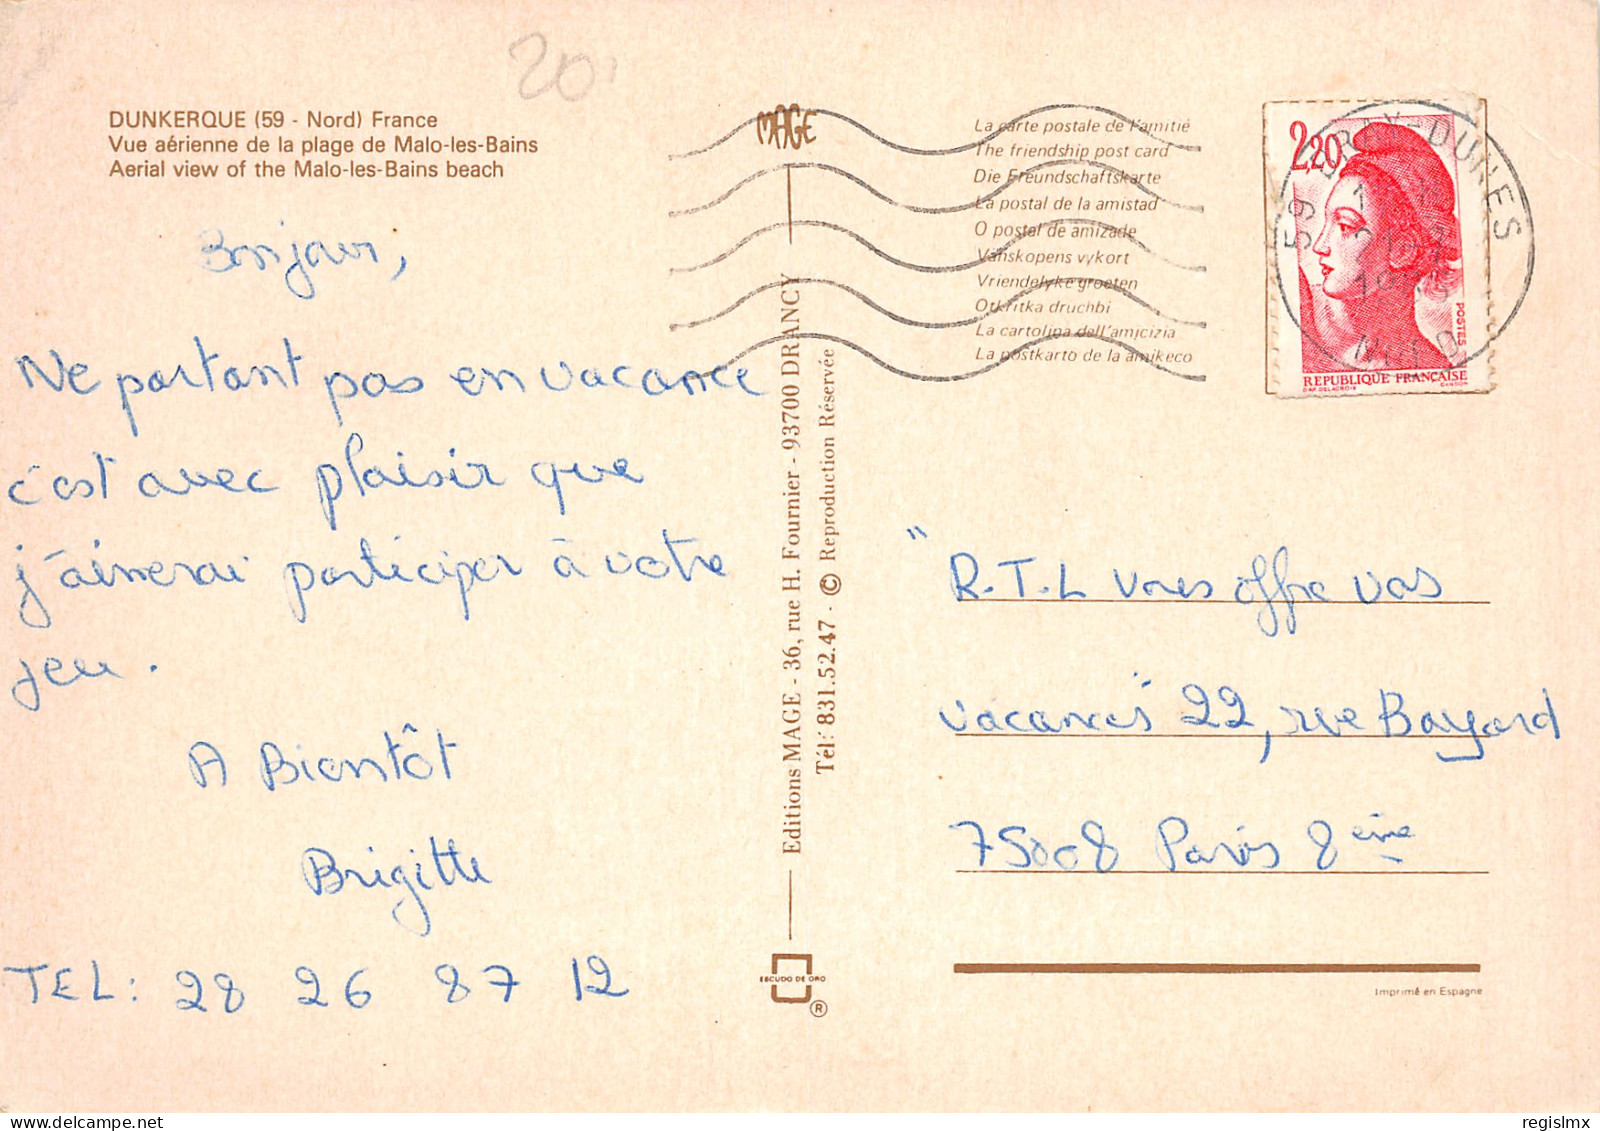 20
DUNKERQUE (59 - Nord) France
Vue aérienne de la plage de Malo-les-Bains
Aerial view of the Malo-les-Bains beach
Bonjour,
Ne partant pas en vacance
c'est avec plaisir que
j'aimerai participer à votre
jeu.
A Bientôt
Brigitte
TEL: 28 26 87 12
MAGE
Editions MAGE - 36, rue H. Fournier - 93700 DRANCY
Tél: 831.52.47 - © Reproduction Réservée
ESCUDO DE ORO
®
La carte postale de l'amitié
The friendship post card
Die Freundschaftskarte
La postal de la amistad
O postal de amizade
Vänskopens vykort
Vriendelyke groeten
Otkritka druchbi
La cartolina dell'amicizia
La postkarto de la amikeco
2,20
POSTES
REPUBLIQUE FRANÇAISE
D'AP. DELACROIX GANDON
59 BRAY-DUNES
NORD
"R.T.L vous offre vos
vacances" 22, rue Bayard
75008 Paris 8ème
Imprimé en Espagne
delcampe.net
regislmx